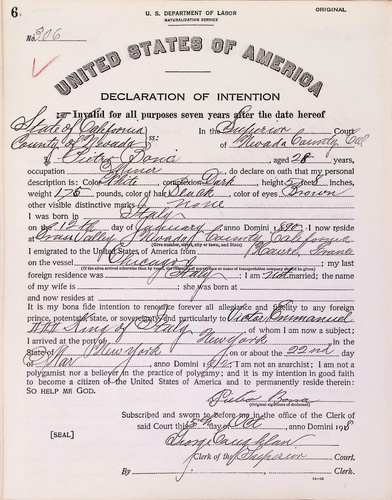 6
U. S. DEPARTMENT OF LABOR
NATURALIZATION SERVICE
ORIGINAL
No. 306
UNITED STATES OF AMERICA
DECLARATION OF INTENTION
Invalid for all purposes seven years after the date hereof
State of California
County of Nevada ss:
In the Superior Court
of Nevada County Cal
I, Pietro Bona, aged 28 years,
occupation Miner, do declare on oath that my personal
description is: Color White, complexion Dark, height 5 feet 8 inches,
weight 175 pounds, color of hair Black, color of eyes Brown
other visible distinctive marks None
I was born in Italy
on the day of January, anno Domini 1890; I now reside
at Grass Valley, Nevada County, California
(Give number, street, city or town, and State.)
I emigrated to the United States of America from Havre, France
on the vessel Chicago; my last
(If the alien arrived otherwise than by vessel, the character of conveyance or name of transportation company should be given.)
foreign residence was Italy; I am not married; the name
of my wife is; she was born at
and now resides at
It is my bona fide intention to renounce forever all allegiance and fidelity to any foreign
prince, potentate, state, or sovereignty, and particularly to Victor Emmanuel
III King of Italy, of whom I am now a subject;
I arrived at the port of New York, in the
State of New York, on or about the 22nd day
of Mar, anno Domini 1912; I am not an anarchist; I am not a
polygamist nor a believer in the practice of polygamy; and it is my intention in good faith
to become a citizen of the United States of America and to permanently reside therein:
SO HELP ME GOD.
Bona
(Original signature of declarant.)
Subscribed and sworn to before me in the office of the Clerk of
said Court this 5th day of Oct, anno Domini 1918
[SEAL]
Clerk of the Superior Court.
By, Clerk.